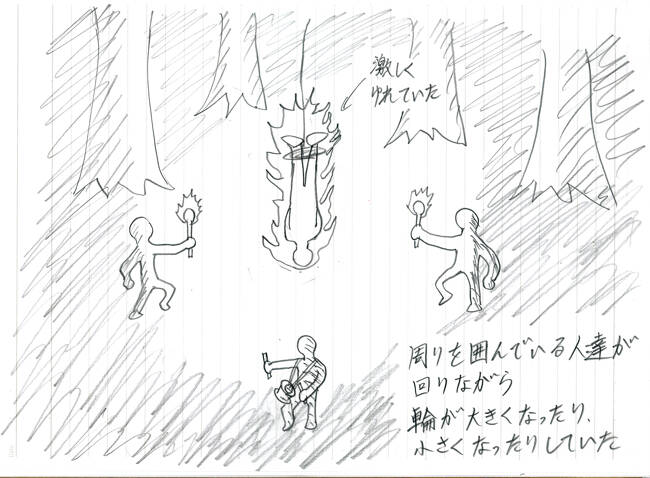 激しく
ゆれていた
周りを囲んでいる人達が
回りながら
輪が大きくなったり、
小さくなったりしていた